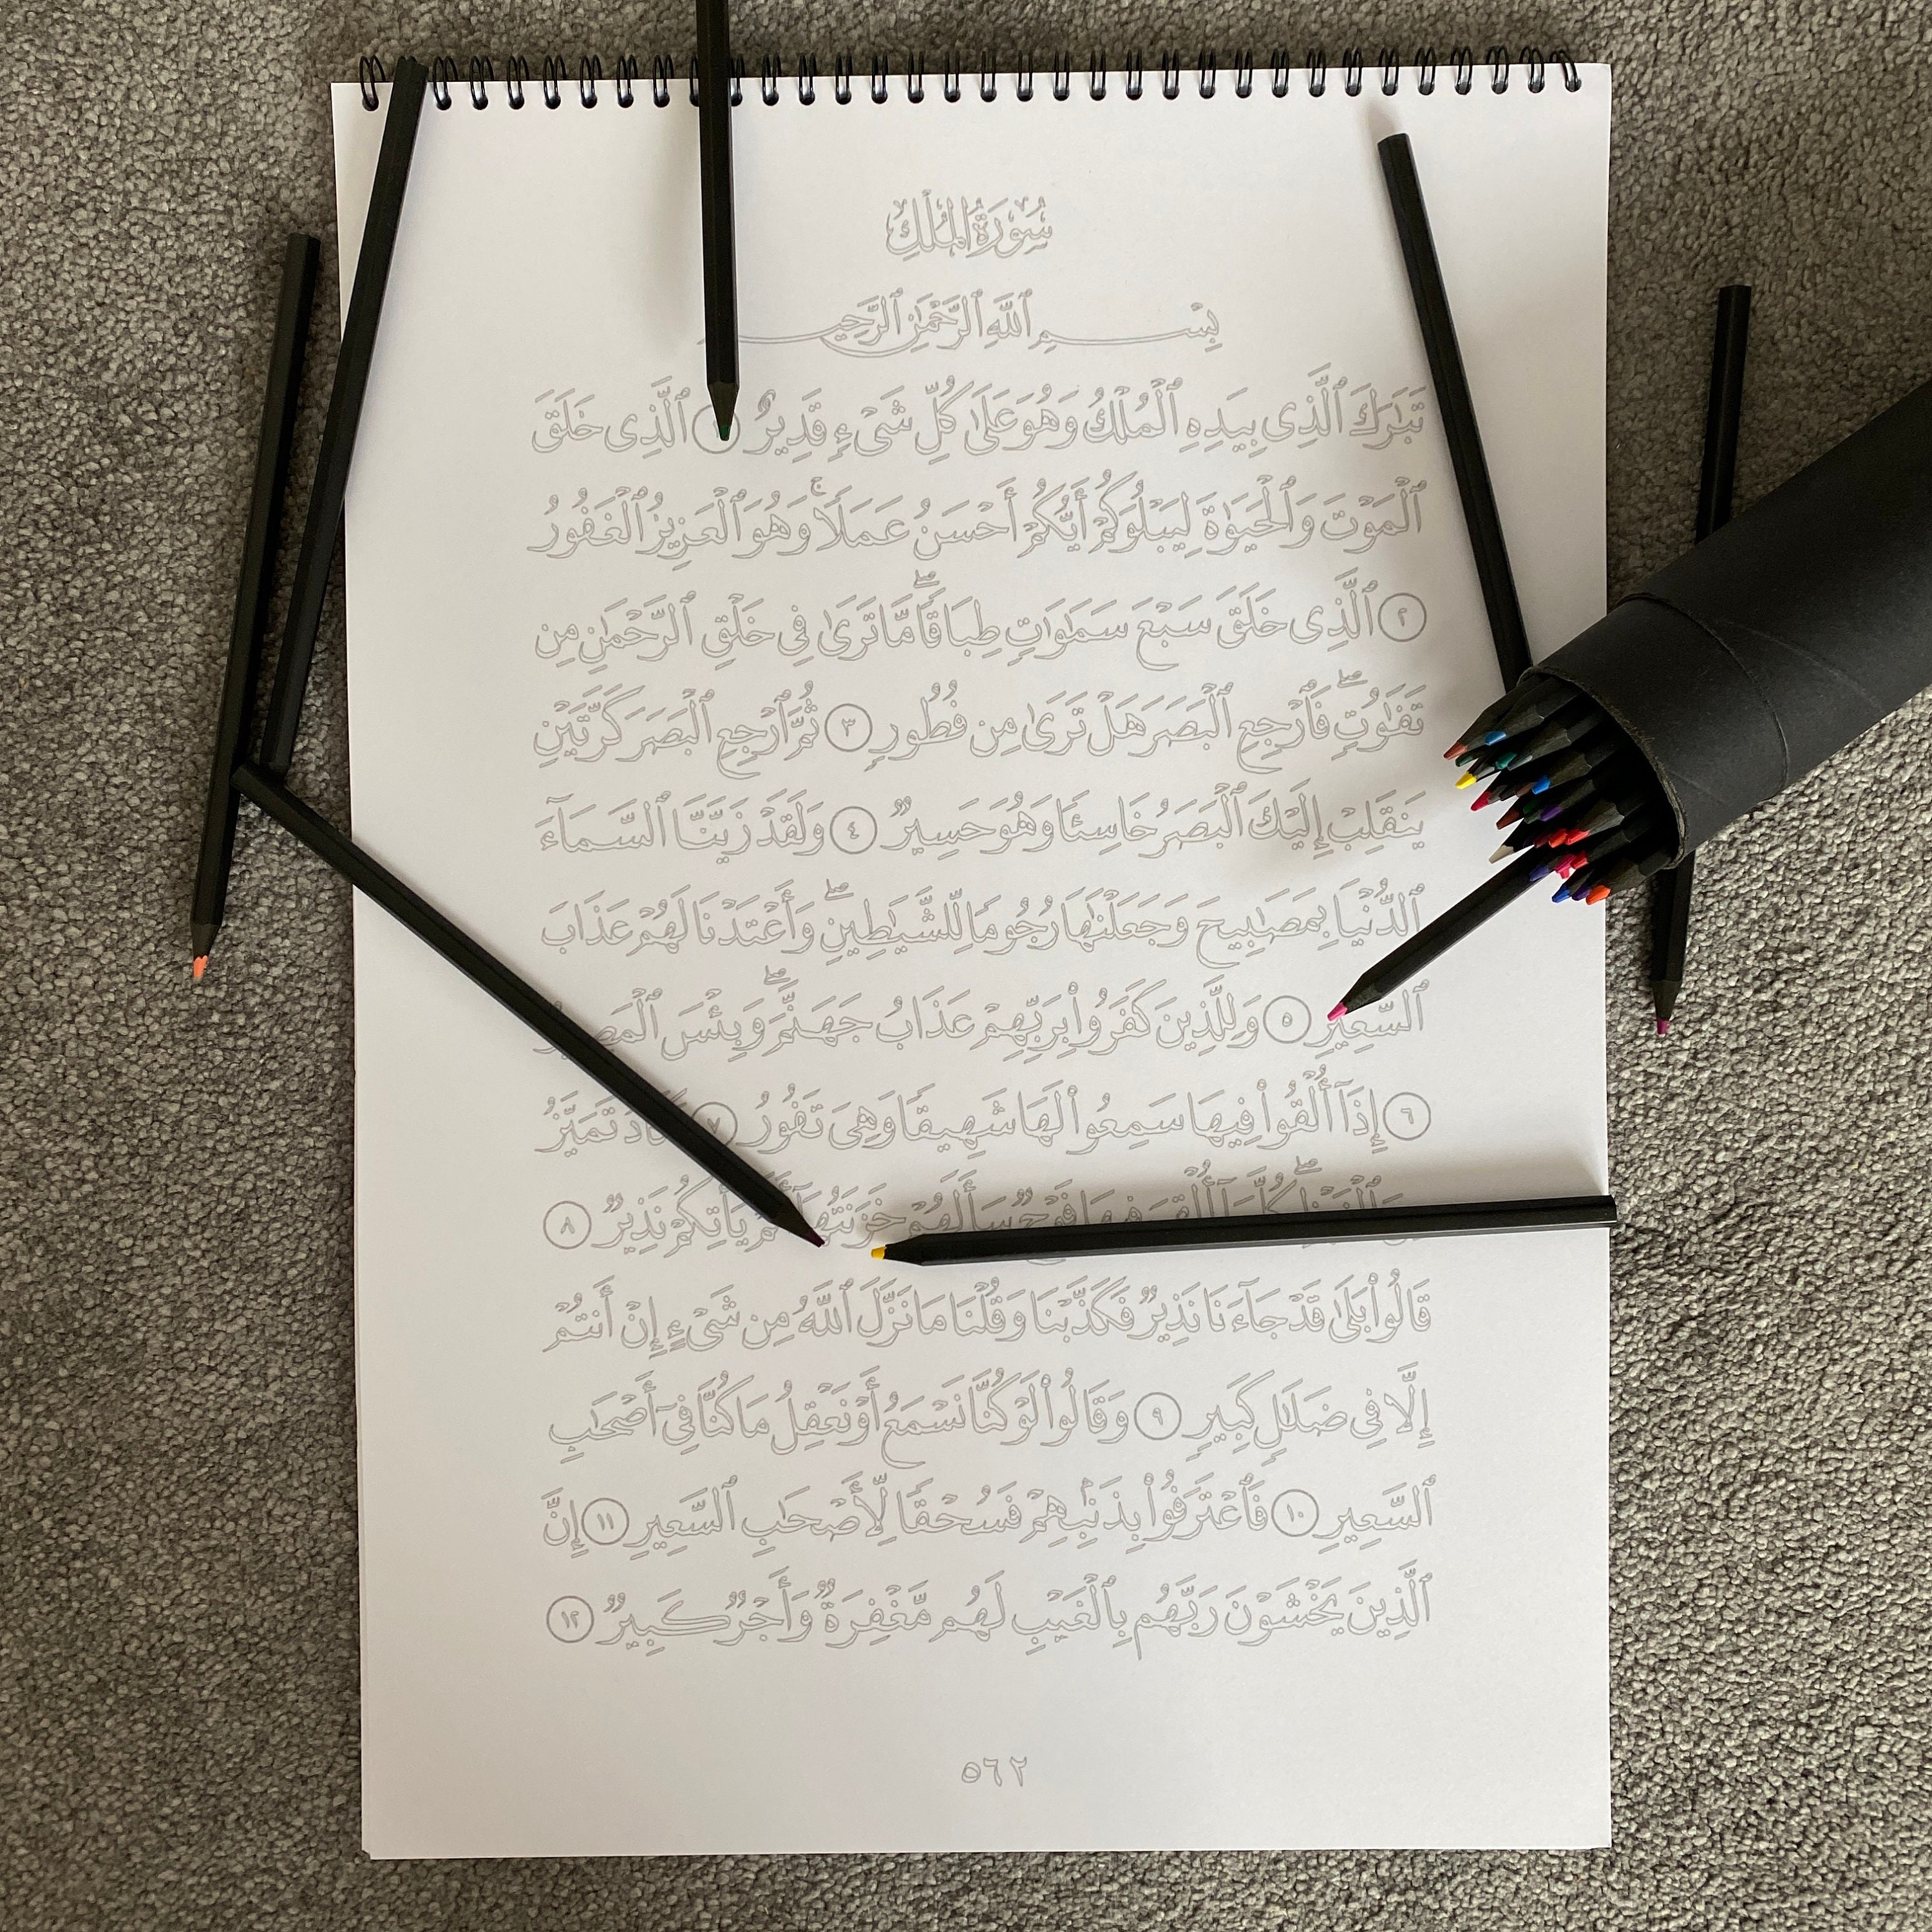 سُورَةُ المُلْكِ
بِسْمِ ٱللَّهِ ٱلرَّحْمَٰنِ ٱلرَّحِيـ
تَبَٰرَكَ ٱلَّذِى بِيَدِهِ ٱلْمُلْكُ وَهُوَ عَلَىٰ كُلِّ شَىْءٍ قَدِيرٌ ۝ ٱلَّذِى خَلَقَ
ٱلْمَوْتَ وَٱلْحَيَوٰةَ لِيَبْلُوَكُمْ أَيُّكُمْ أَحْسَنُ عَمَلًا ۚ وَهُوَ ٱلْعَزِيزُ ٱلْغَفُورُ
٢ ٱلَّذِى خَلَقَ سَبْعَ سَمَٰوَٰتٍ طِبَاقًا ۖ مَّا تَرَىٰ فِى خَلْقِ ٱلرَّحْمَٰنِ مِن
تَفَٰوُتٍ ۖ فَٱرْجِعِ ٱلْبَصَرَ هَلْ تَرَىٰ مِن فُطُورٍ ٣ ثُمَّ ٱرْجِعِ ٱلْبَصَرَ كَرَّتَيْنِ
يَنقَلِبْ إِلَيْكَ ٱلْبَصَرُ خَاسِئًا وَهُوَ حَسِيرٌ ٤ وَلَقَدْ زَيَّنَّا ٱلسَّمَآءَ
ٱلدُّنْيَا بِمَصَٰبِيحَ وَجَعَلْنَٰهَا رُجُومًا لِّلشَّيَٰطِينِ ۖ وَأَعْتَدْنَا لَهُمْ عَذَابَ
ٱلسَّعِيرِ ٥ وَلِلَّذِينَ كَفَرُوا۟ بِرَبِّهِمْ عَذَابُ جَهَنَّمَ ۖ وَبِئْسَ
٦ إِذَآ أُلْقُوا۟ فِيهَا سَمِعُوا۟ لَهَا شَهِيقًا وَهِىَ تَفُورُ ٧ تَمَيَّزُ
سَأَلَهُمْ خَزَنَتُهَآ يَأْتِكُمْ نَذِيرٌ ٨
قَالُوا۟ بَلَىٰ قَدْ جَآءَنَا نَذِيرٌ فَكَذَّبْنَا وَقُلْنَا مَا نَزَّلَ ٱللَّهُ مِن شَىْءٍ إِنْ أَنتُمْ
إِلَّا فِى ضَلَٰلٍ كَبِيرٍ ٩ وَقَالُوا۟ لَوْ كُنَّا نَسْمَعُ أَوْ نَعْقِلُ مَا كُنَّا فِىٓ أَصْحَٰبِ
ٱلسَّعِيرِ ١٠ فَٱعْتَرَفُوا۟ بِذَنۢبِهِمْ فَسُحْقًا لِّأَصْحَٰبِ ٱلسَّعِيرِ ١١ إِنَّ
ٱلَّذِينَ يَخْشَوْنَ رَبَّهُم بِٱلْغَيْبِ لَهُم مَّغْفِرَةٌ وَأَجْرٌ كَبِيرٌ ١٢
٥٦٢